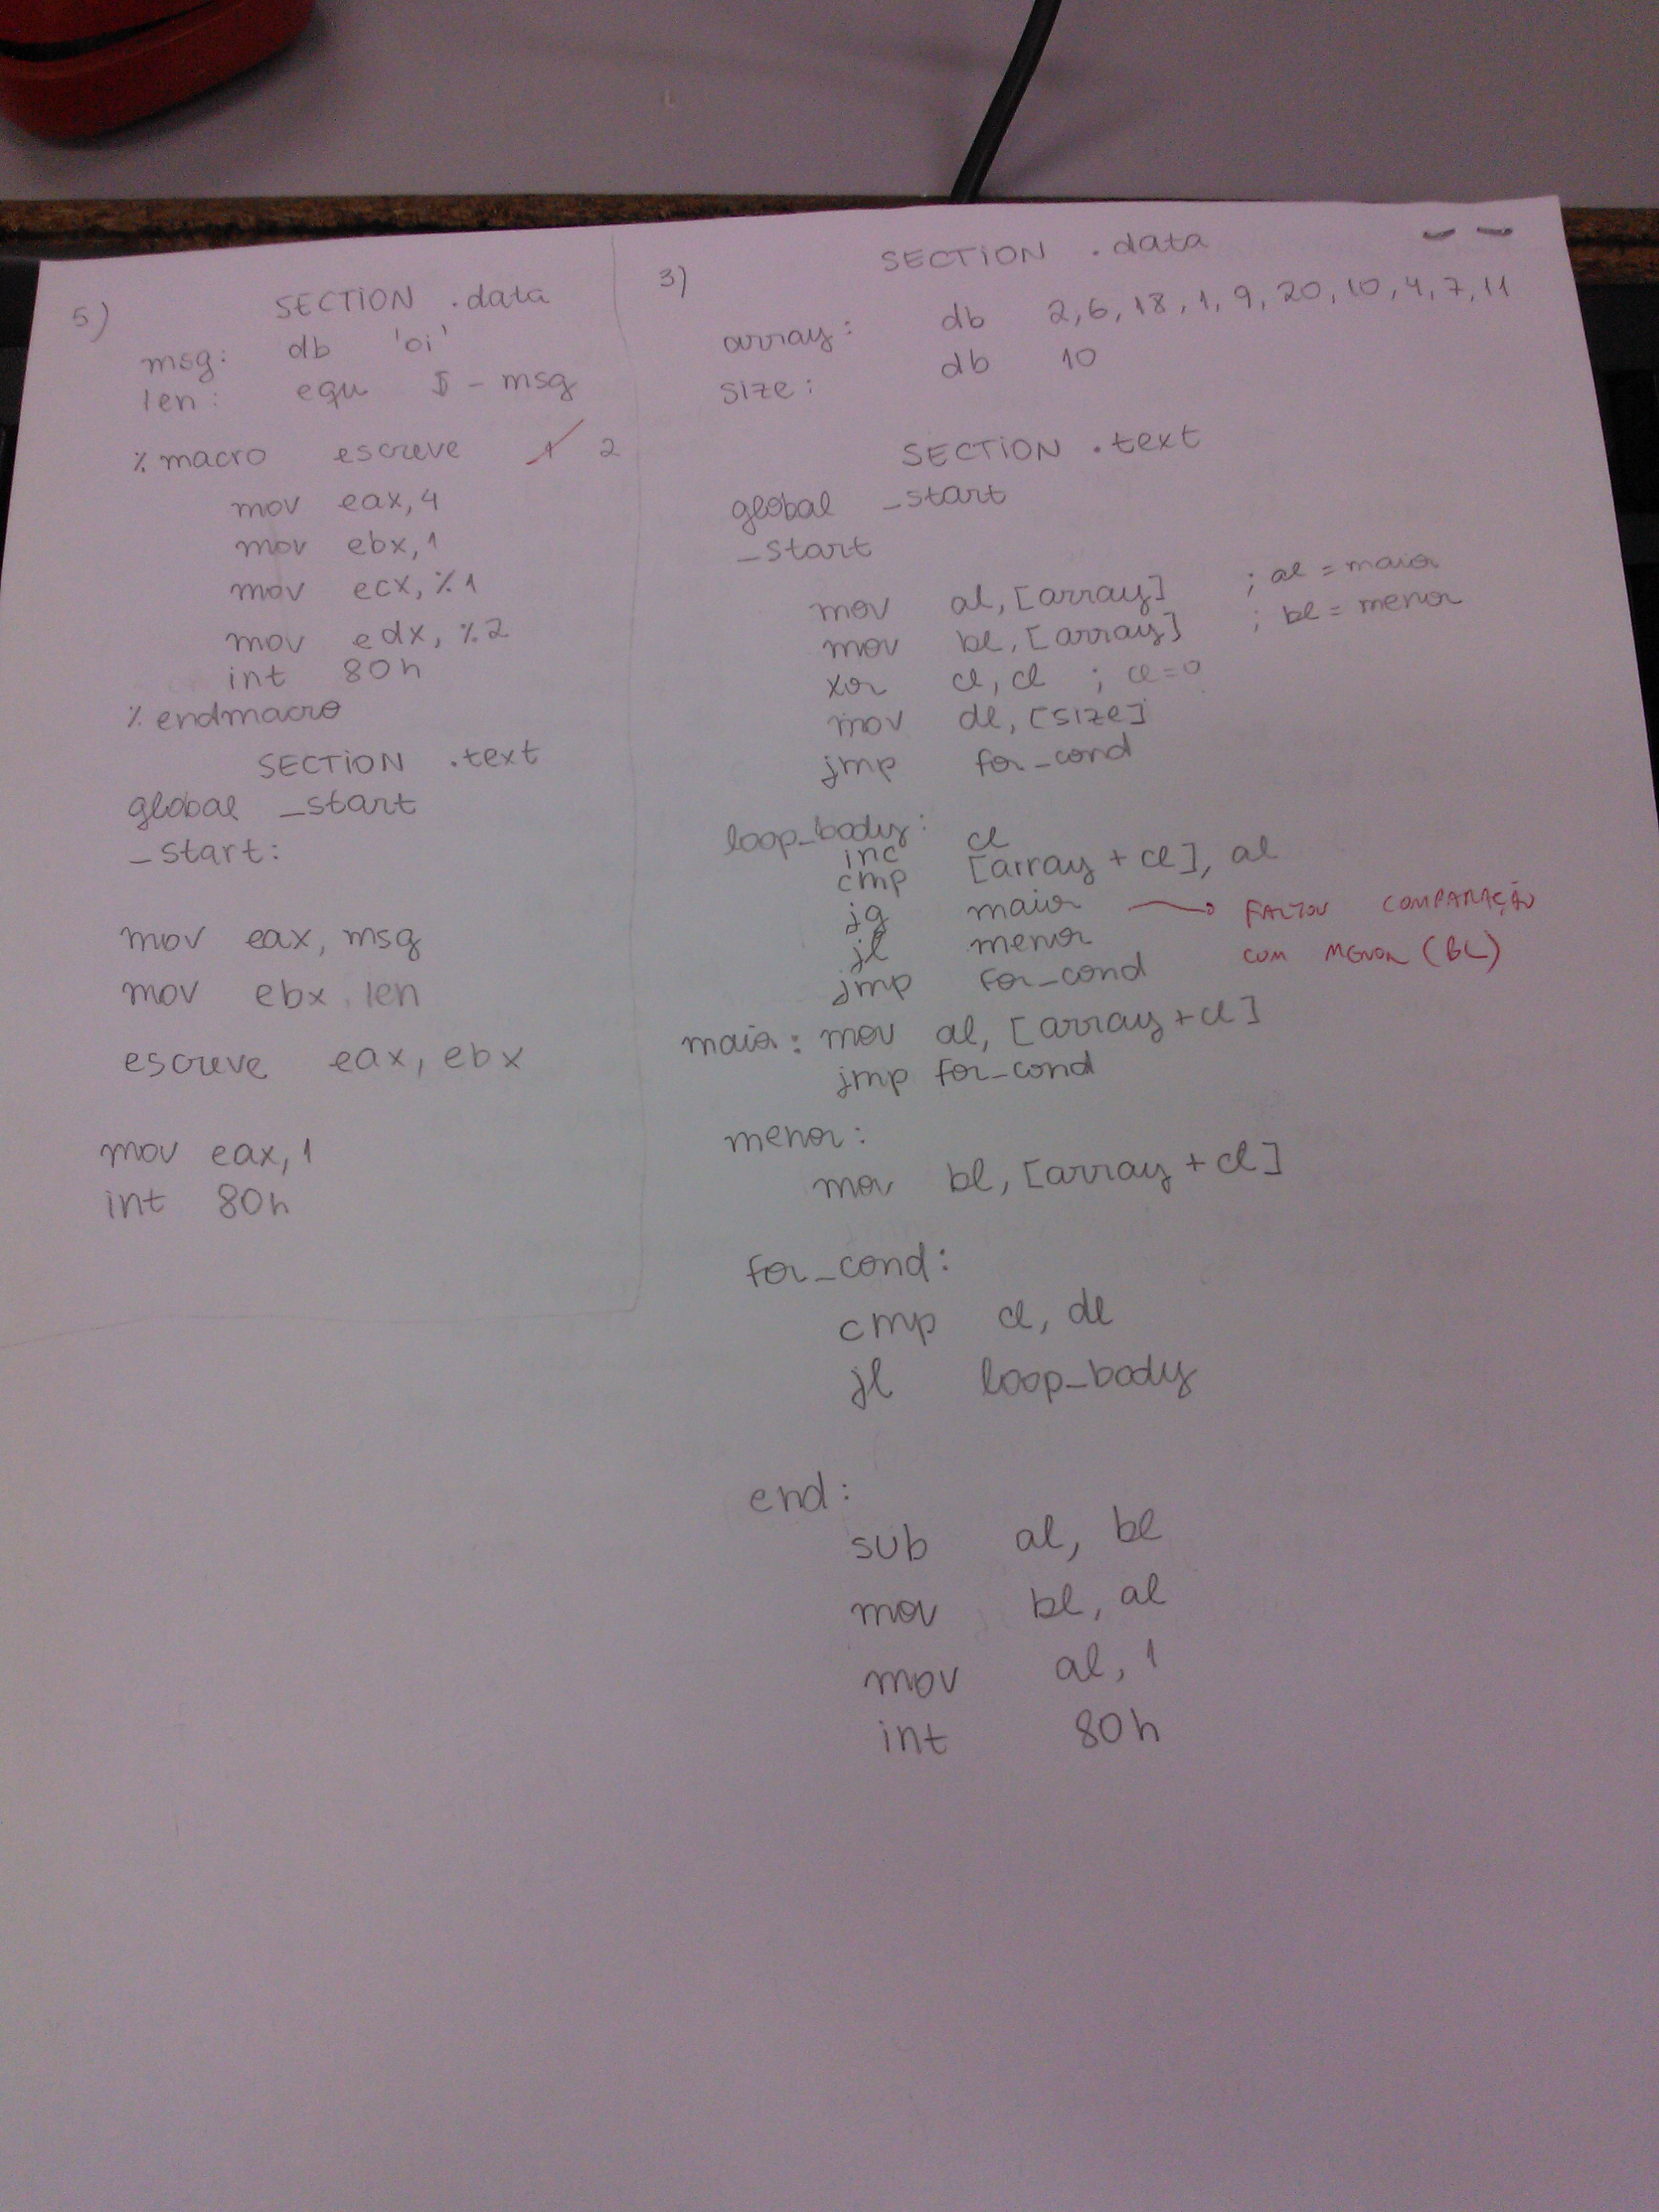 5)
SECTION .data
msg: db 'oi'
len: equ $ - msg
% macro escreve 1 2
mov eax, 4
mov ebx, 1
mov ecx, %1
mov edx, %2
int 80h
% endmacro
SECTION .text
global _start
_start:
mov eax, msg
mov ebx, len
escreve eax, ebx
mov eax, 1
int 80h
3)
SECTION .data
array: db 2, 6, 18, 1, 9, 20, 10, 4, 7, 11
size: db 10
SECTION .text
global _start
_start
mov al, [array] ; al = maior
mov bl, [array] ; bl = menor
xor cl, cl ; cl=0
mov dl, [size]
jmp for_cond
loop_body:
inc cl
cmp [array + cl], al
jg maior → FALTOU COMPARAÇÃO
jl menor COM MENOR (BL)
jmp for_cond
maior: mov al, [array+cl]
jmp for_cond
menor:
mov bl, [array + cl]
for_cond:
cmp cl, dl
jl loop_body
end:
sub al, bl
mov bl, al
mov al, 1
int 80h